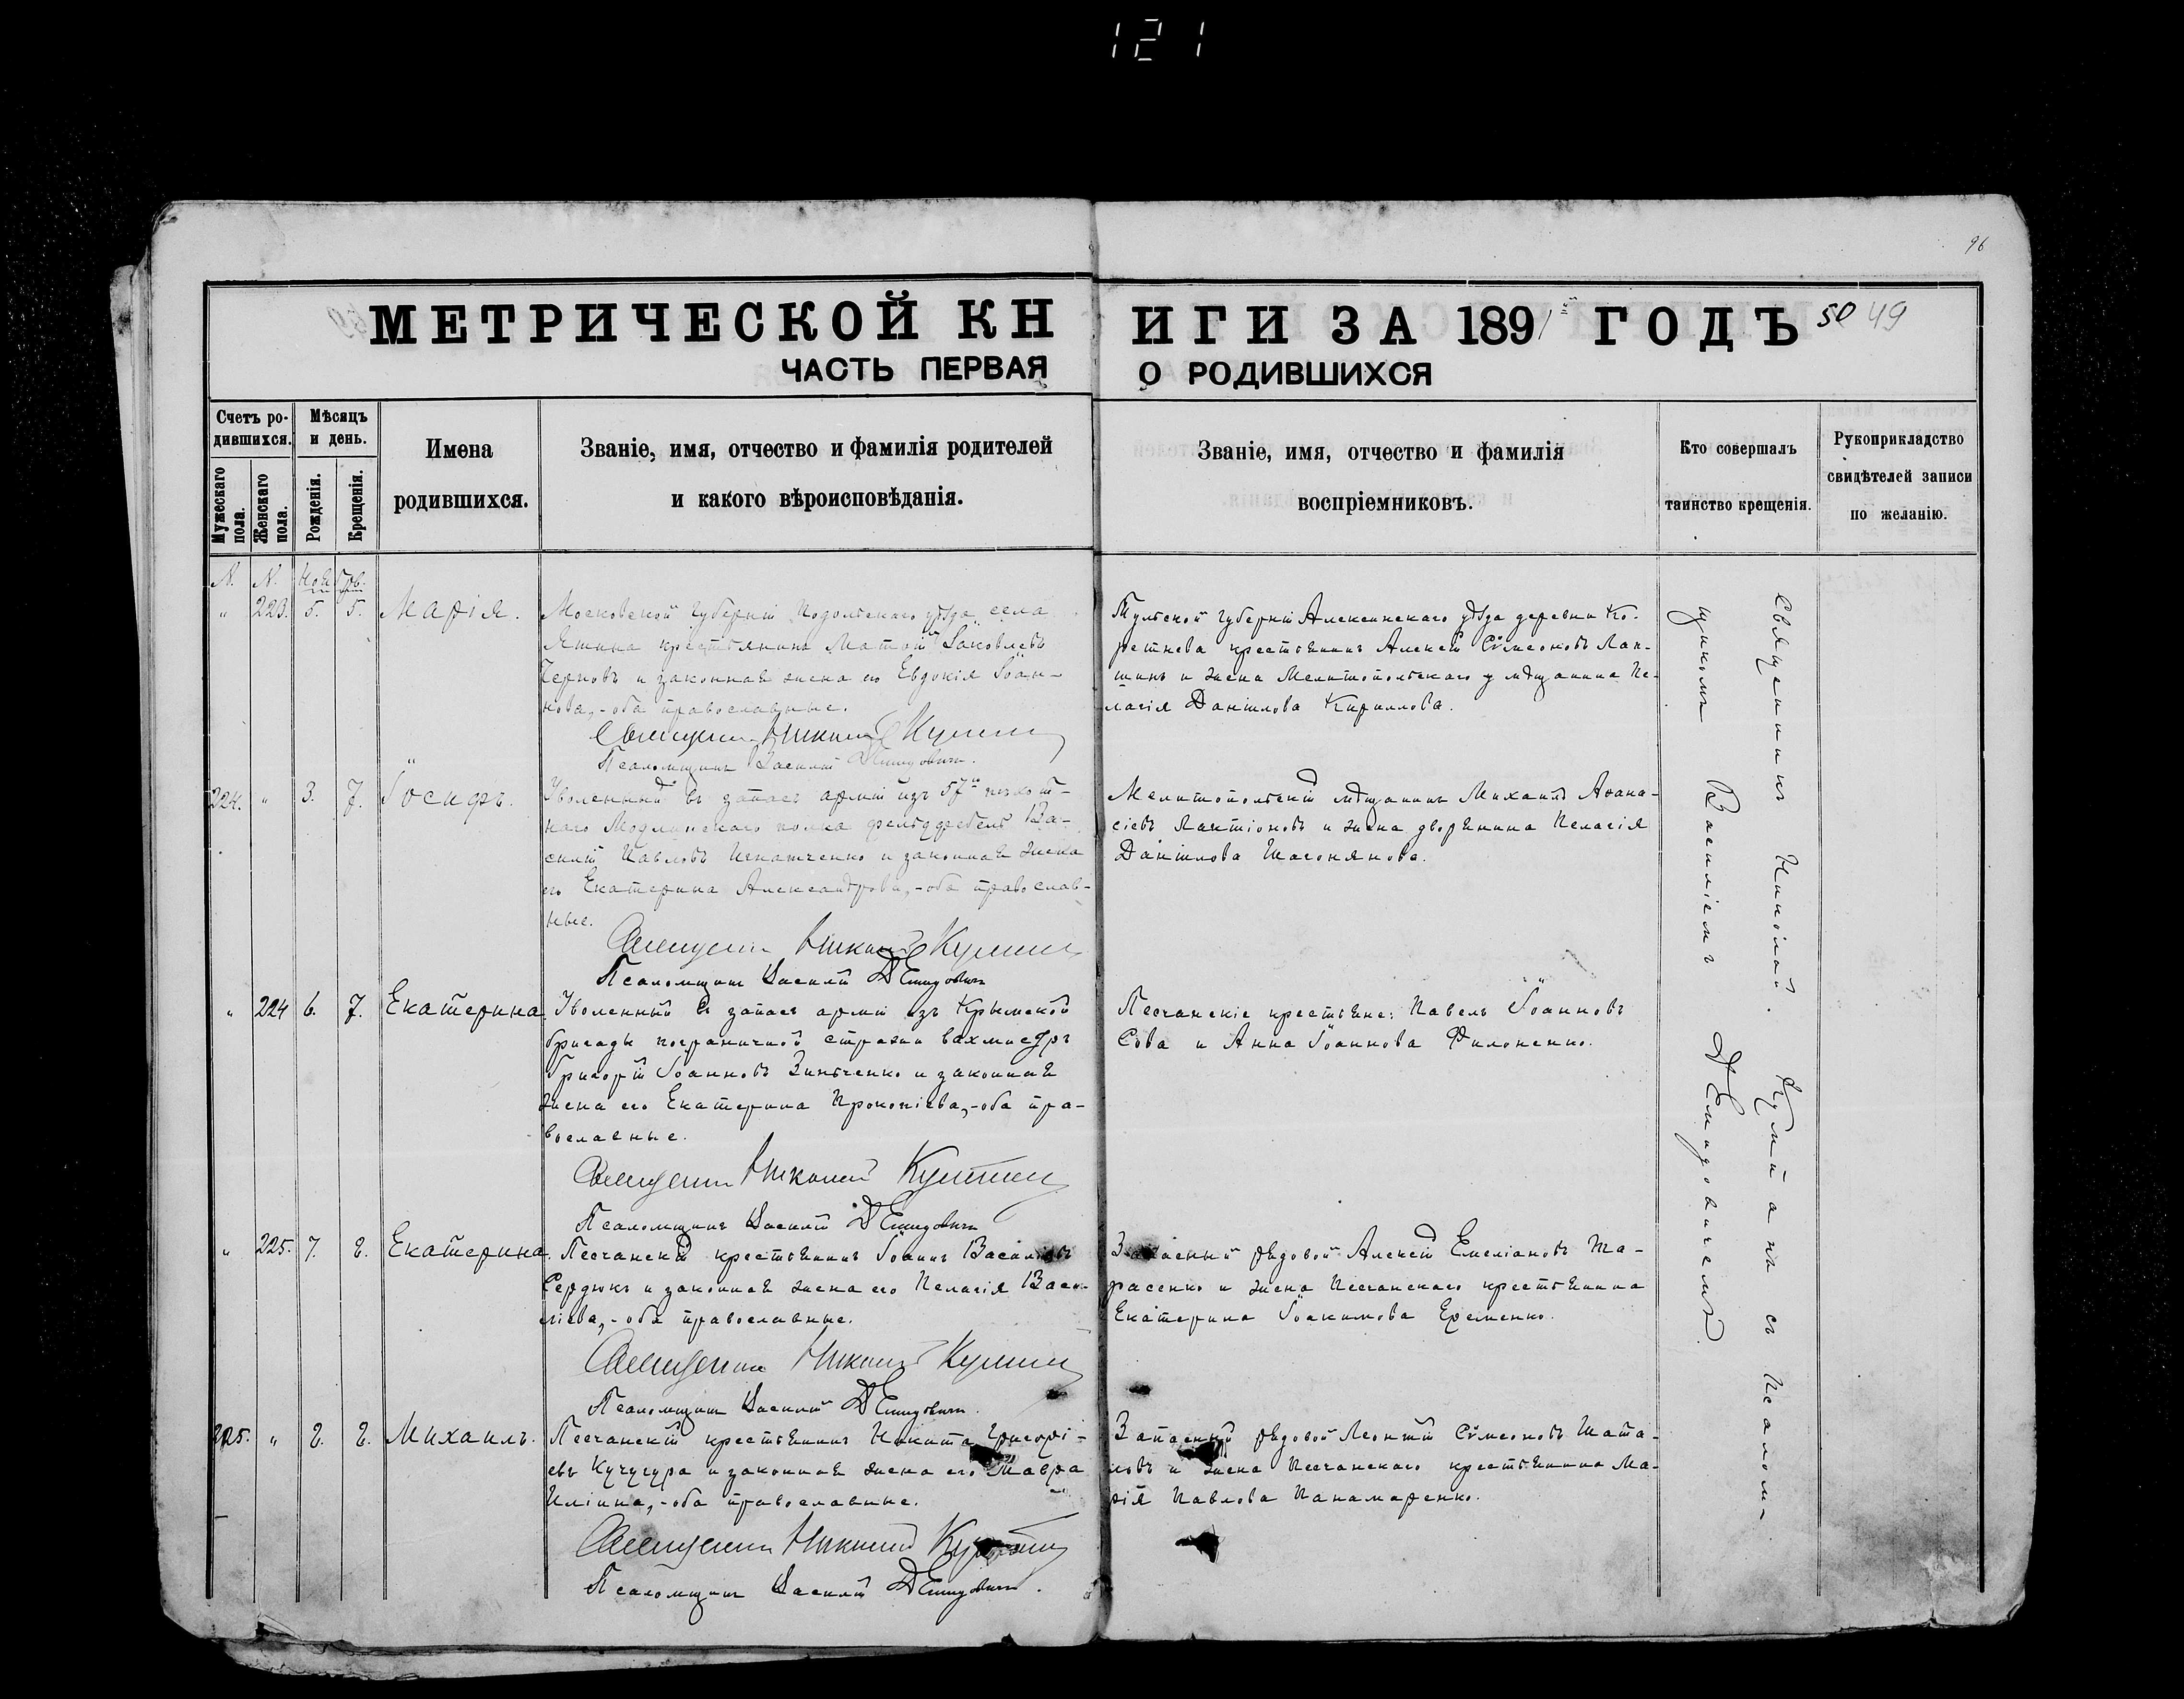 121
96
МЕТРИЧЕСКОЙ КНИГИ ЗА 1891 ГОДЪ 50 49
ЧАСТЬ ПЕРВАЯ О РОДИВШИХСЯ
Счетъ родившихся.
Мужескаго пола.
Женскаго пола.
Мѣсяцъ и день.
Рожденія.
Крещенія.
Имена
родившихся.
Званіе, имя, отчество и фамилія родителей
и какого вѣроисповѣданія.
Званіе, имя, отчество и фамилія
воспріемниковъ.
Кто совершалъ
таинство крещенія.
Рукоприкладство
свидѣтелей записи
по желанію.
N. N.
" 223. 5. 5. Марія.
Московской губерніи Подольскаго уѣзда, села
крестьянинъ Яковлевъ
и законная жена его Евдокія Іоан-
нова,-оба православные.
Священникъ Николай
Псаломщикъ Василій Демидовичъ.
Тульской губерніи Алексинскаго уѣзда деревни Ко-
крестьянинъ Алексѣй Сѵмеоновъ Лап-
шинъ и жена Мелитопольскаго мѣщанина Пе-
лагія Даніилова Кириллова.
224. " 3. 7. Іосифъ.
Уволенный въ запасъ арміи изъ 57го пѣхот-
наго Модлинскаго полка фельдфебель Ва-
силій Павловъ Игнатченко и законная жена
его Екатерина Александрова,-оба православ-
ные.
Священникъ Николай
Псаломщикъ Василій Демидовичъ
Мелитопольскій мѣщанинъ Михаилъ Аѳана-
сіевъ Лактіоновъ и жена дворянина Пелагія
Даніилова
" 224 6. 7. Екатерина.
Уволенный въ запасъ арміи изъ Крымской
бригады пограничной стражи вахмистръ
Григорій Іоанновъ Зинченко и законная
жена его Екатерина Прокопіева,-оба пра-
вославные.
Священникъ Николай
Псаломщикъ Василій Демидовичъ
Песчанскіе крестьяне: Павелъ Іоанновъ
Сова и Анна Іоаннова Филоненко.
" 225. 7. 8. Екатерина.
Песчанскій крестьянинъ Іоаннъ Василіевъ
Сердюкъ и законная жена его Пелагія Васи-
ліева,-оба православные.
Священникъ Николай
Псаломщикъ Василій Демидовичъ.
Запасный рядовой Алексѣй Емеліановъ Та-
расенко и жена Песчанскаго крестьянина
Екатерина Іоакимова Еременко.
225. " 8. 8. Михаилъ.
Песчанскій крестьянинъ Никита Григорі-
евъ Кучугура и законная жена его Мавра
Иліина,-оба православные.
Священникъ Николай
Псаломщикъ Василій Демидовичъ.
Запасный рядовой Леонтій Сѵмеоновъ Шата-
ловъ и жена Песчанскаго крестьянина Ма-
рія Павлова Панамаренко.
Священникъ Николай съ псалом-
щикомъ Василіемъ Демидовичемъ